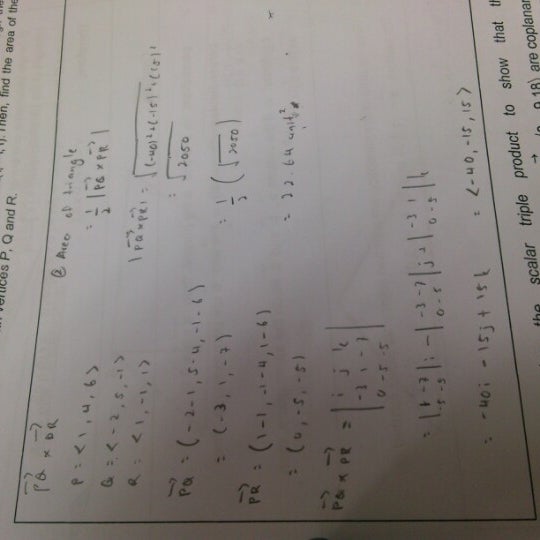 1). Then, find the area of the
vertices P, Q and R.
PQ × PR
P = < 1, 4, 6 >
Q = < -2, 5, -1 >
R = < 1, -1, 1 >
PQ = (-2-1, 5-4, -1-6)
= (-3, 1, -7)
PR = (1-1, -1-4, 1-6)
= (0, -5, -5)
PQ × PR = | i j k
-3 1 -7
0 -5 -5 |
= | 1 -7
-5 -5 | i - | -3 -7
0 -5 | j + | -3 1
0 -5 | k
= -40i - 15j + 15k = < -40, -15, 15 >
Area of triangle
= 1/2 | PQ × PR |
| PQ × PR | = √(-40)²+(-15)²+(15)²
= √2050
= 1/2 (√2050)
= 22.64 unit²
the scalar triple product to show that
9,18) are coplanar